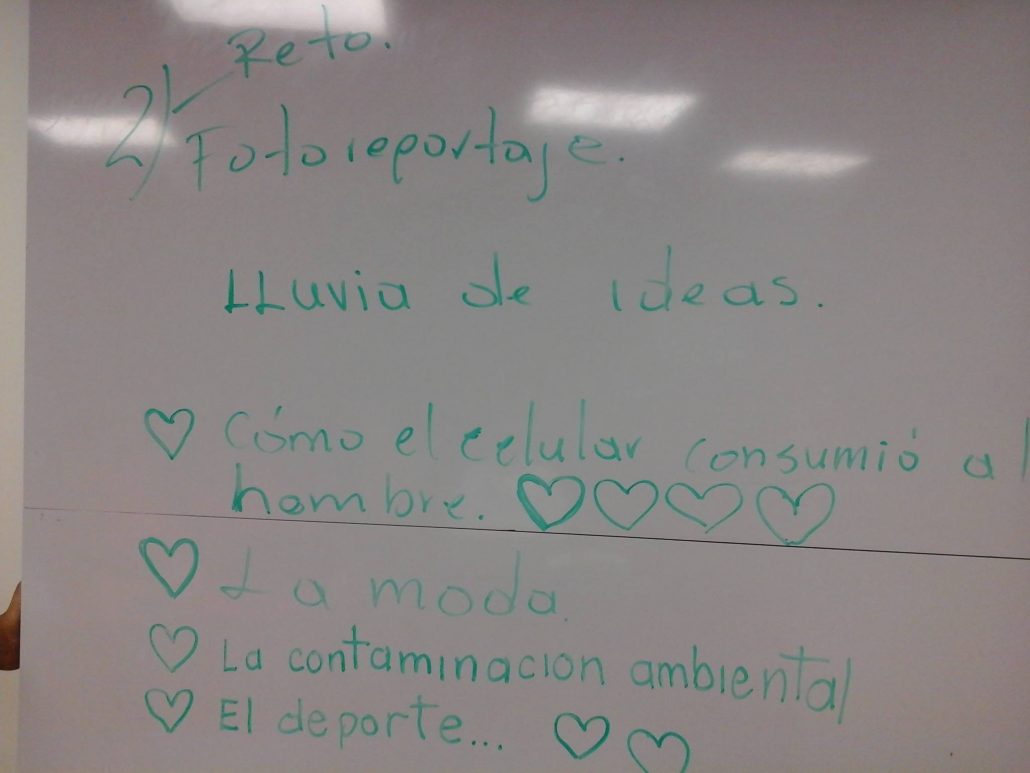 Reto.
2) Fotoreportaje.
LLuvia de ideas.
♡ Cómo el celular consumió al
hombre. ♡♡♡♡
♡ La moda.
♡ La contaminacion ambiental
♡ El deporte... ♡♡